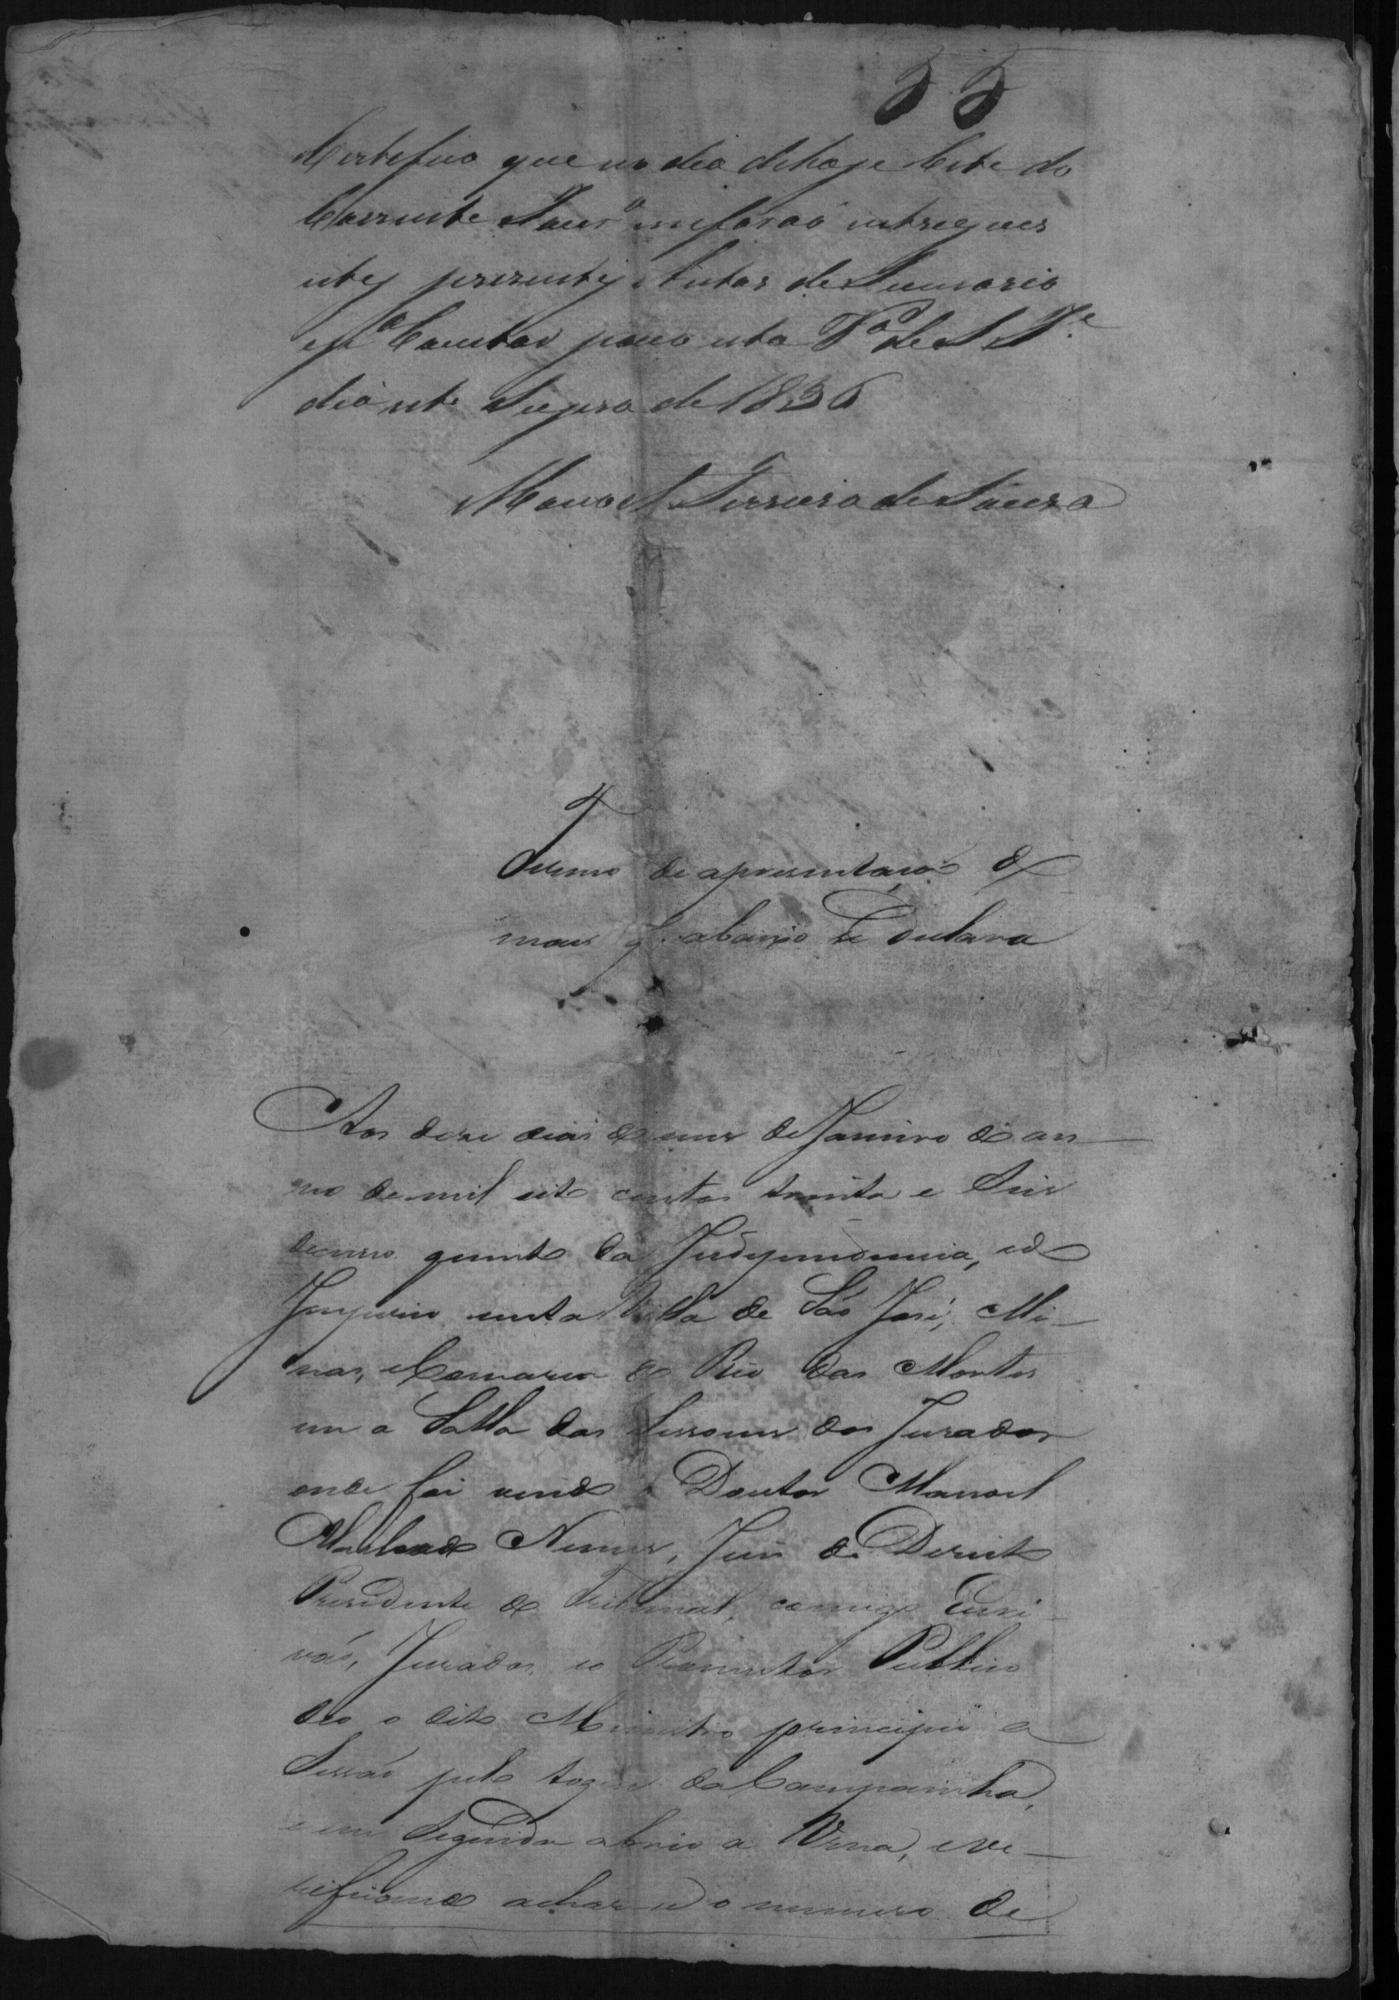 55
Certefico que no dia dehoje Cete do
Corrente Janr.o me forão entregues
estes prezentes Autos de Sumario
para esta V.a de S. J.e
dia ute Supra de 1836
Manoel Ferreira de Souza
Termo de aprezentação do
mais q. abaixo se declara
Aos doze dias do mez de Janeiro do an-
no de mil oito centos trinta e Seis
decimo quinto da Independencia, e do
Imperio nesta Villa de São José, Mi-
nas, e Comarca do Rio das Mortes
em a Salla das Sessoens dos Jurados
onde foi vindo o Doutor Manoel
Machado Nunes, Juis de Dereito
Presidente do Tribunal, comigo Escri-
vão, Jurados, e o Promotor Publico
deo o dito Ministro principio a
Sessão pelo toque da Campainha,
e em Seguida abrio a Urna, e ve-
rificando achar-se o numero de